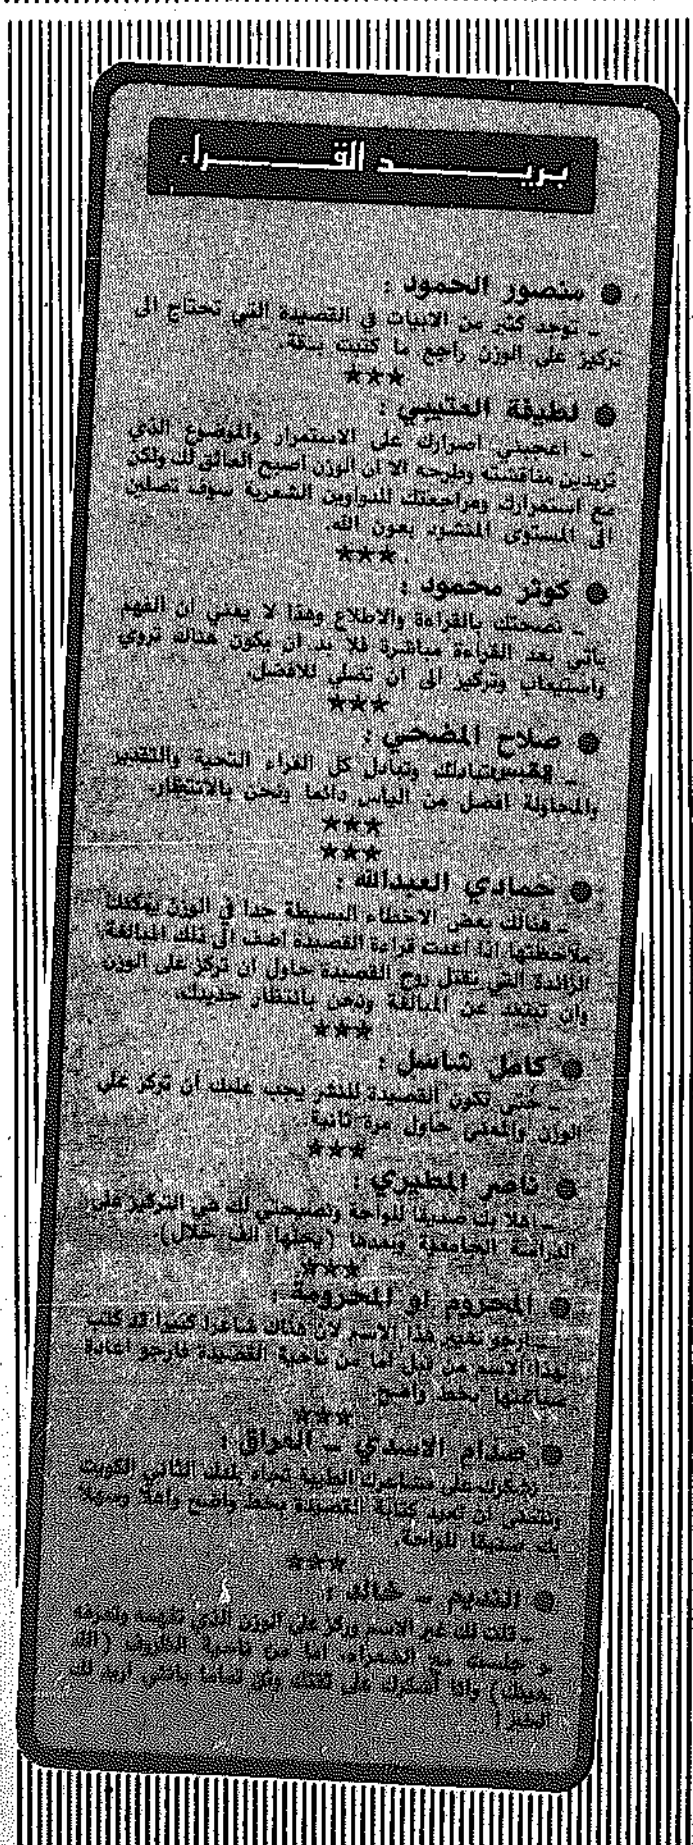 بريد القراء
منصور الحمود :
ـ توجد كثير من الابيات في القصيدة التي تحتاج الى
تركيز على الوزن راجع ما كتبت بدقة.
★★★
لطيفة العتيبي :
ـ اعجبني اصرارك على الاستمرار والموضوع الذي
تريدين مناقشته وطرحه الا ان الوزن اصبح العائق لك ولكن
مع استمرارك ومراجعتك للدواوين الشعرية سوف تصلين
الى المستوى المنشود بعون الله.
★★★
كوثر محمود :
ـ نصحتك بالقراءة والاطلاع وهذا لا يعني ان الفهم
يأتي بعد القراءة مباشرة فلا بد ان يكون هناك تروي
واستيعاب وتركيز الى ان تصلي للافضل.
★★★
صلاح المضحي :
ـ نتبادلك وتبادل كل القراء التحية والتقدير
والمحاولة افضل من اليأس دائما ونحن بالانتظار.
★★★
★★★
حمادي العبدالله :
ـ هنالك بعض الاخطاء البسيطة جدا في الوزن يمكنك
ملاحظتها اذا اعدت قراءة القصيدة اضف الى ذلك المبالغة
الزائدة التي تقتل روح القصيدة حاول ان تركز على الوزن
وان تبتعد عن المبالغة ونحن بانتظار جديدك.
★★★
كامل شاسل :
ـ حتى تكون القصيدة للنشر يجب عليك ان تركز على
الوزن والمعنى حاول مرة ثانية.
★★★
ناصر المطيري :
ـ اهلا بك صديقا للواحة ونصيحتي لك هي التركيز على
الدراسة الجامعية وبعدها (يحلها الف حلال).
★★★
المحروم او المحرومة :
ـ ارجو تغيير هذا الاسم لان هناك شاعرا كبيرا قد كتب
بهذا الاسم من قبل اما من ناحية القصيدة فارجو اعادة
صياغتها بخط واضح.
★★★
صدام الاسدي ـ العراق :
ـ نشكرك على مشاعرك الطيبة تجاه بلدك الثاني الكويت
ونتمنى ان تعيد كتابة القصيدة بخط واضح واهلا وسهلا
بك صديقا للواحة.
★★★
النديم ـ خالد :
ـ قلت لك غير الاسم وركز على الوزن الذي تفهمه وتعرفه
لو جلست مع الشعراء، اما من ناحية الظروف (الله
يعينك) وانا اشكرك على ثقتك وثق تماما بأنني اريد لك
الخير!